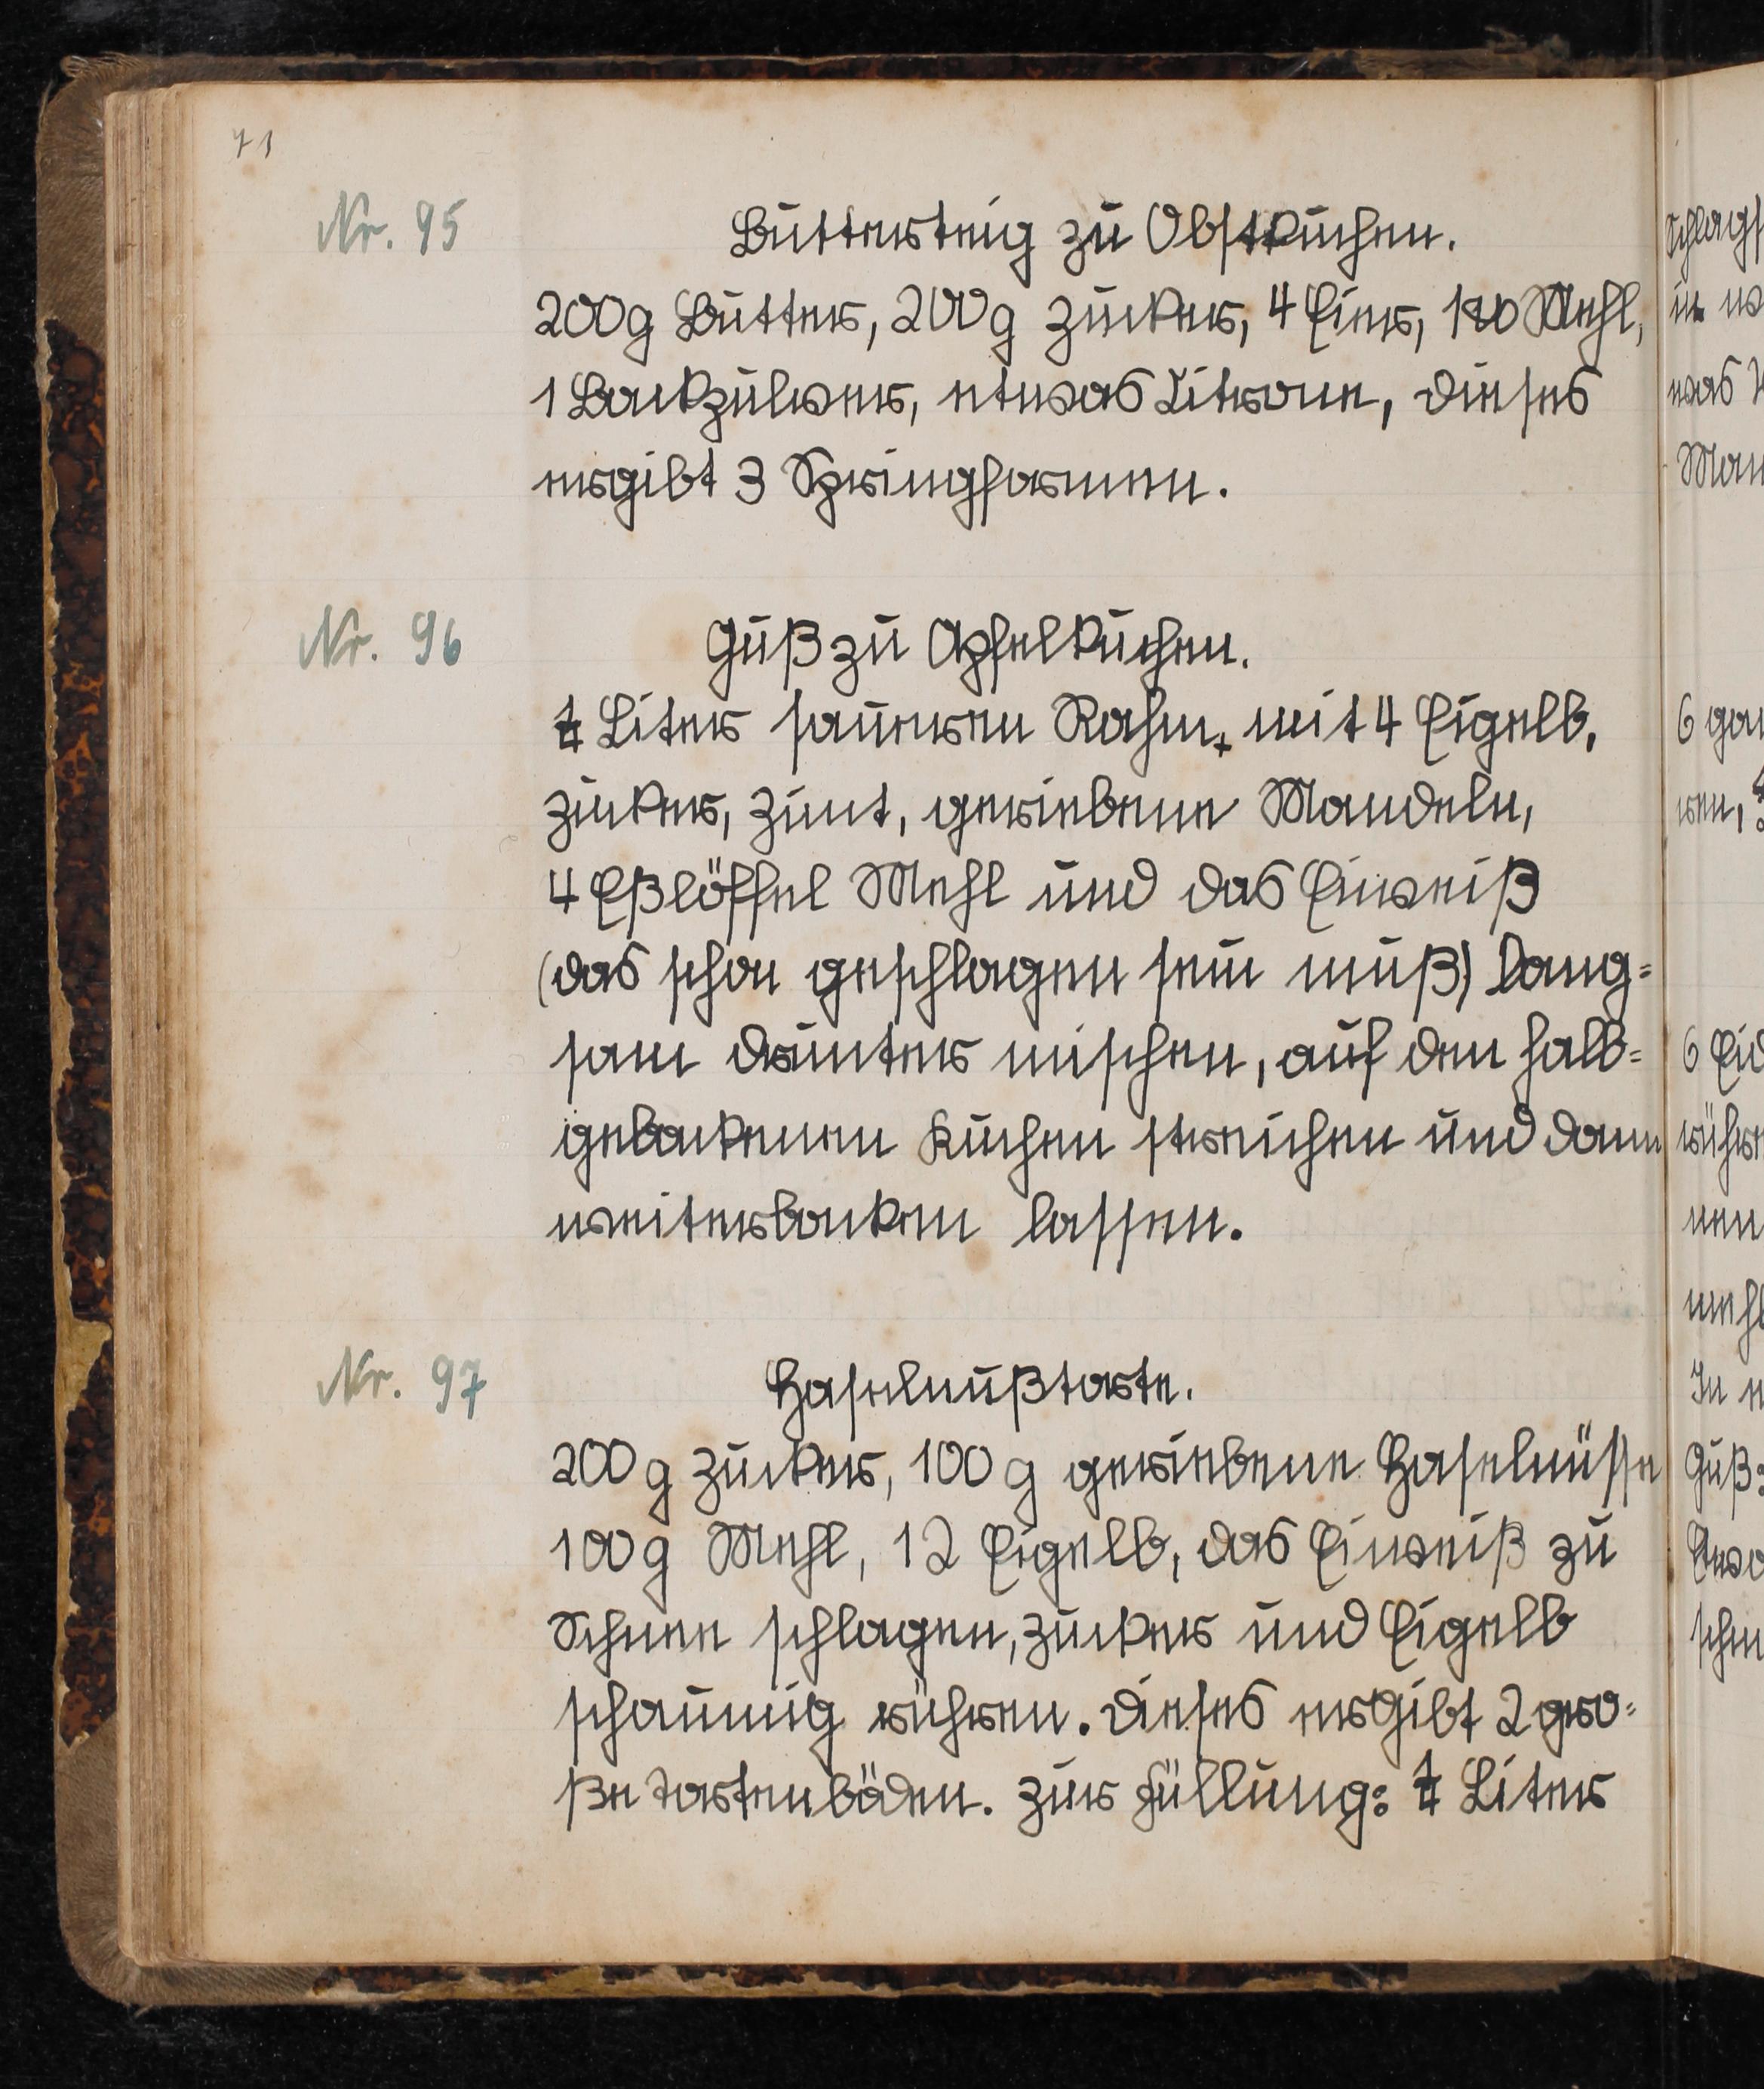 71
Nr. 95
Butterteig zu Obstkuchen.
200g Butter, 200g Zucker, 4 Eier, Mehl,
1 Backpulver, etwas Zitrone, dieses
ergibt 3 Springformen.
Nr. 96
Guß zu Apfelkuchen.
Liter saueren Rahm, mit 4 Eigelb,
Zucker, Zimt, geriebene Mandeln,
4 Eßlöffel Mehl und das Eiweiß
(das schon geschlagen sein muß) lang=
sam drunter mischen, auf den halb=
gebackenen Kuchen streichen und dann
weiterbacken lassen.
Nr. 97
Haselnußtorte.
200 g Zucker, 100 g geriebene Haselnüsse
100g Mehl, 12 Eigelb, das Eiweiß zu
Schnee schlagen, Zucker und Eigelb
schaumig rühren. Dieses ergibt 2 gro=
ße Tortenböden. Zur Füllung: Liter
Schlags
in
was
Man
6 gan
ren,
6 Eid
rühre
nen
mehl
In
Guß:
schm